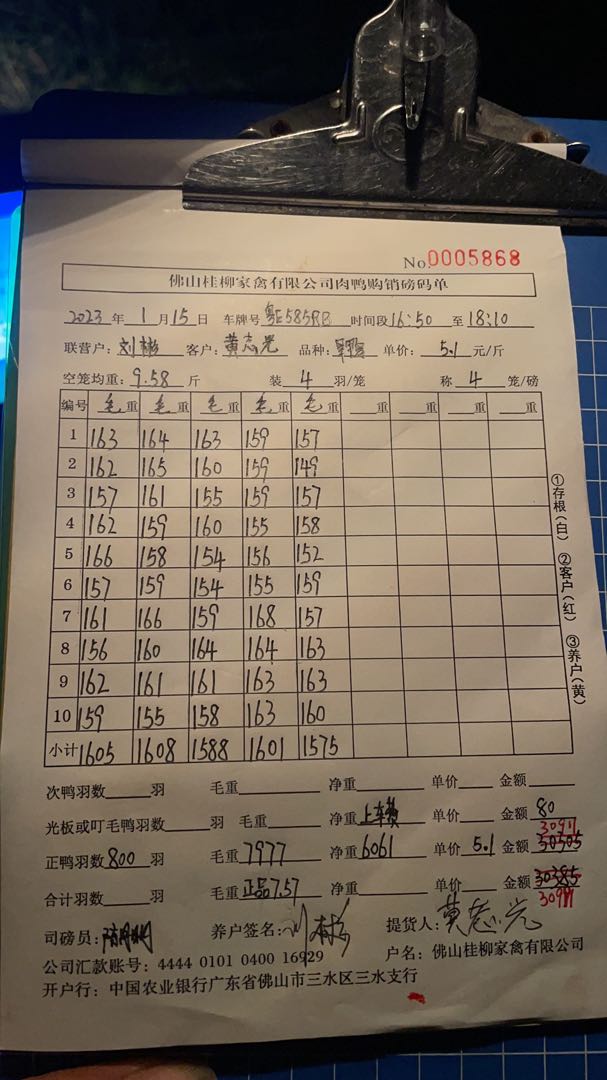 No. 0005868
佛山桂柳家禽有限公司肉鸭购销磅码单
2023 年 1 月 15 日 车牌号 粤E585RB 时间段 16:50 至 18:10
联营户: 刘彬 客户: 黄志光 品种: 单价: 5.1 元/斤
空笼均重: 9.58 斤 装 4 羽/笼 称 4 笼/磅
编号 毛重 毛重 毛重 毛重 毛重 重 重 重 重
1 163 164 163 159 157
2 162 165 160 159 149
3 157 161 155 159 157
4 162 159 160 155 158
5 166 158 154 156 152
6 157 159 154 155 159
7 161 166 159 168 157
8 156 160 164 164 163
9 162 161 161 163 163
10 159 155 158 163 160
小计 1605 1608 1588 1601 1575
①存根(白) ②客户(红) ③养户(黄)
次鸭羽数 羽 毛重 净重 单价 金额
光板或叮毛鸭羽数 羽 毛重 净重 上车费 单价 金额 80
30911
正鸭羽数 800 羽 毛重 7977 净重 6061 单价 5.1 金额 30305
合计羽数 羽 毛重 正品7.57 净重 单价 金额 30385
司磅员: 养户签名: 刘彬 提货人: 黄志光
公司汇款账号: 4444 0101 0400 16929 户名: 佛山桂柳家禽有限公司
开户行: 中国农业银行广东省佛山市三水区三水支行